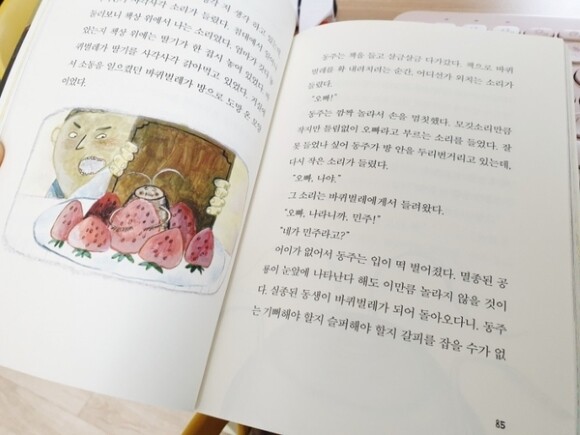 각 저 생각 하고 있는데
가 들렸다. 침대에서 일어나
둘러보니 책상 위에서 나는 소리였다. 엄마가 갖다
있는지 책상 위에는 딸기가 한 접시 놓여 있었다.
퀴벌레가 딸기를 사각사각 갉아먹고 있었다. 거실에
서 소동을 일으켰던 바퀴벌레가 방으로 도망 온 모양
이었다.
동주는 책을 들고 살금살금 다가갔다. 책으로 바퀴
벌레를 확 내려치려는 순간, 어디선가 외치는 소리가
들렸다.
“오빠!”
동주는 깜짝 놀라서 손을 멈칫했다. 모깃소리만큼
작지만 틀림없이 오빠라고 부르는 소리를 들었다. 잘
못 들었나 싶어 동주가 방 안을 두리번거리고 있는데,
다시 작은 소리가 들렸다.
“오빠, 나야.”
그 소리는 바퀴벌레에게서 들려왔다.
“오빠, 나라니까, 민주!”
“네가 민주라고?”
어이가 없어서 동주는 입이 떡 벌어졌다. 멸종된 공
룡이 눈앞에 나타난다 해도 이만큼 놀라지 않을 것이
다. 실종된 동생이 바퀴벌레가 되어 돌아오다니. 동주
는 기뻐해야 할지 슬퍼해야 할지 갈피를 잡을 수가 없
85